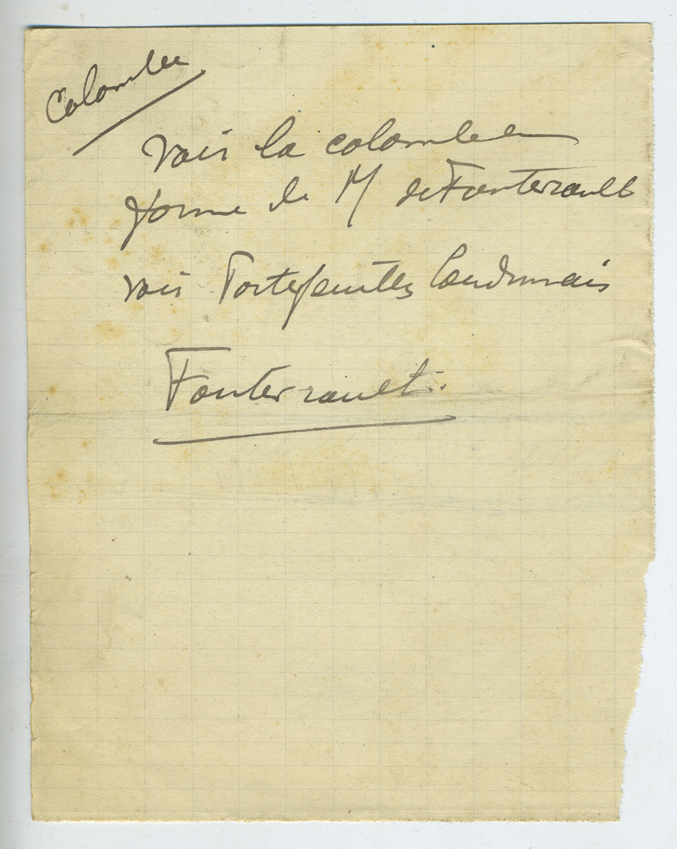 Colombier
voir la colombier
forme de M de Fonterault
voir Portefeuilles Loudunais
Fonterault.